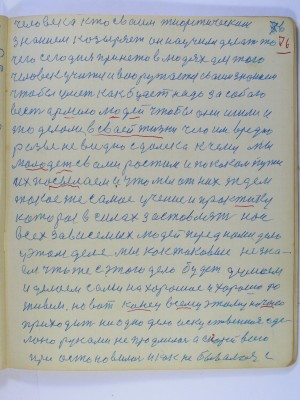 человека кто своим теоретическим 76
знанием козыряет он научили делать то 76
чего сегодня принято в людях для того
человек учится и вооружается своим знанием
чтобы уметь как будет надо за собою
вести армию людей чтобы они шли и
то делали, в своей жизни чего им вредно
разве не видно с далека к чему мы
молодеж свами ростим и по каком пути
их посылаем и что мы от них ждем
такое же самое учение и практику
которая в силах заставлять нас
всех зависимых людей перед нами дело
у этом деле мы как таковые не зна
ем что же с этого дело будет думаем
и делаем сами на хорошое а хорошо по
живем, но вот конец всему этому начало
приходит ни одно дело искуственная сде
лано руками не продлилося а взяло
при остоновилос и как не бывалое с